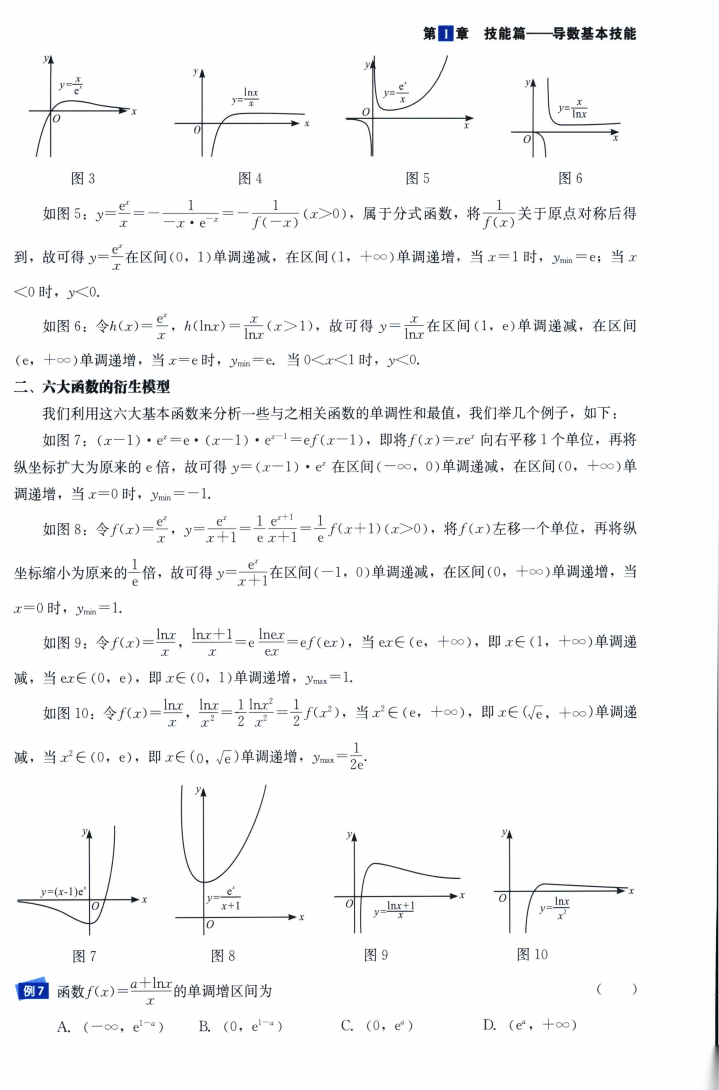 第1章 技能篇——导数基本技能
y
y=x/eˣ
O
x
y
y=lnx/x
O
x
y
y=eˣ/x
O
x
y
y=x/lnx
O
x
图3 图4 图5 图6
如图5：y=eˣ/x=-1/(-x·e⁻ˣ)=-1/f(-x)(x>0)，属于分式函数，将1/f(x)关于原点对称后得
到，故可得y=eˣ/x在区间(0，1)单调递减，在区间(1，+∞)单调递增，当x=1时，yₘᵢₙ=e；当x
<0时，y<0.
如图6：令h(x)=eˣ/x，h(lnx)=x/lnx(x>1)，故可得y=x/lnx在区间(1，e)单调递减，在区间
(e，+∞)单调递增，当x=e时，yₘᵢₙ=e. 当0<x<1时，y<0.
二、六大函数的衍生模型
我们利用这六大基本函数来分析一些与之相关函数的单调性和最值，我们举几个例子，如下：
如图7：(x-1)·eˣ=e·(x-1)·eˣ⁻¹=ef(x-1)，即将f(x)=xeˣ向右平移1个单位，再将
纵坐标扩大为原来的e倍，故可得y=(x-1)·eˣ在区间(-∞，0)单调递减，在区间(0，+∞)单
调递增，当x=0时，yₘᵢₙ=-1.
如图8：令f(x)=eˣ/x，y=eˣ/(x+1)=1/e eˣ⁺¹/(x+1)=1/e f(x+1)(x>0)，将f(x)左移一个单位，再将纵
坐标缩小为原来的1/e倍，故可得y=eˣ/(x+1)在区间(-1，0)单调递减，在区间(0，+∞)单调递增，当
x=0时，yₘᵢₙ=1.
如图9：令f(x)=lnx/x，(lnx+1)/x=e lnex/ex=ef(ex)，当ex∈(e，+∞)，即x∈(1，+∞)单调递
减，当ex∈(0，e)，即x∈(0，1)单调递增，yₘₐₓ=1.
如图10：令f(x)=lnx/x，lnx/x²=1/2 lnx²/x²=1/2 f(x²)，当x²∈(e，+∞)，即x∈(√e，+∞)单调递
减，当x²∈(0，e)，即x∈(0，√e)单调递增，yₘₐₓ=1/2e.
y
y=(x-1)eˣ
O
x
y
y=eˣ/(x+1)
O
x
y
O
x
y=(lnx+1)/x
y
O
x
y=lnx/x²
图7 图8 图9 图10
例7 函数f(x)=(a+lnx)/x的单调增区间为 （ ）
A. (-∞，e¹⁻ᵃ) B. (0，e¹⁻ᵃ) C. (0，eᵃ) D. (eᵃ，+∞)